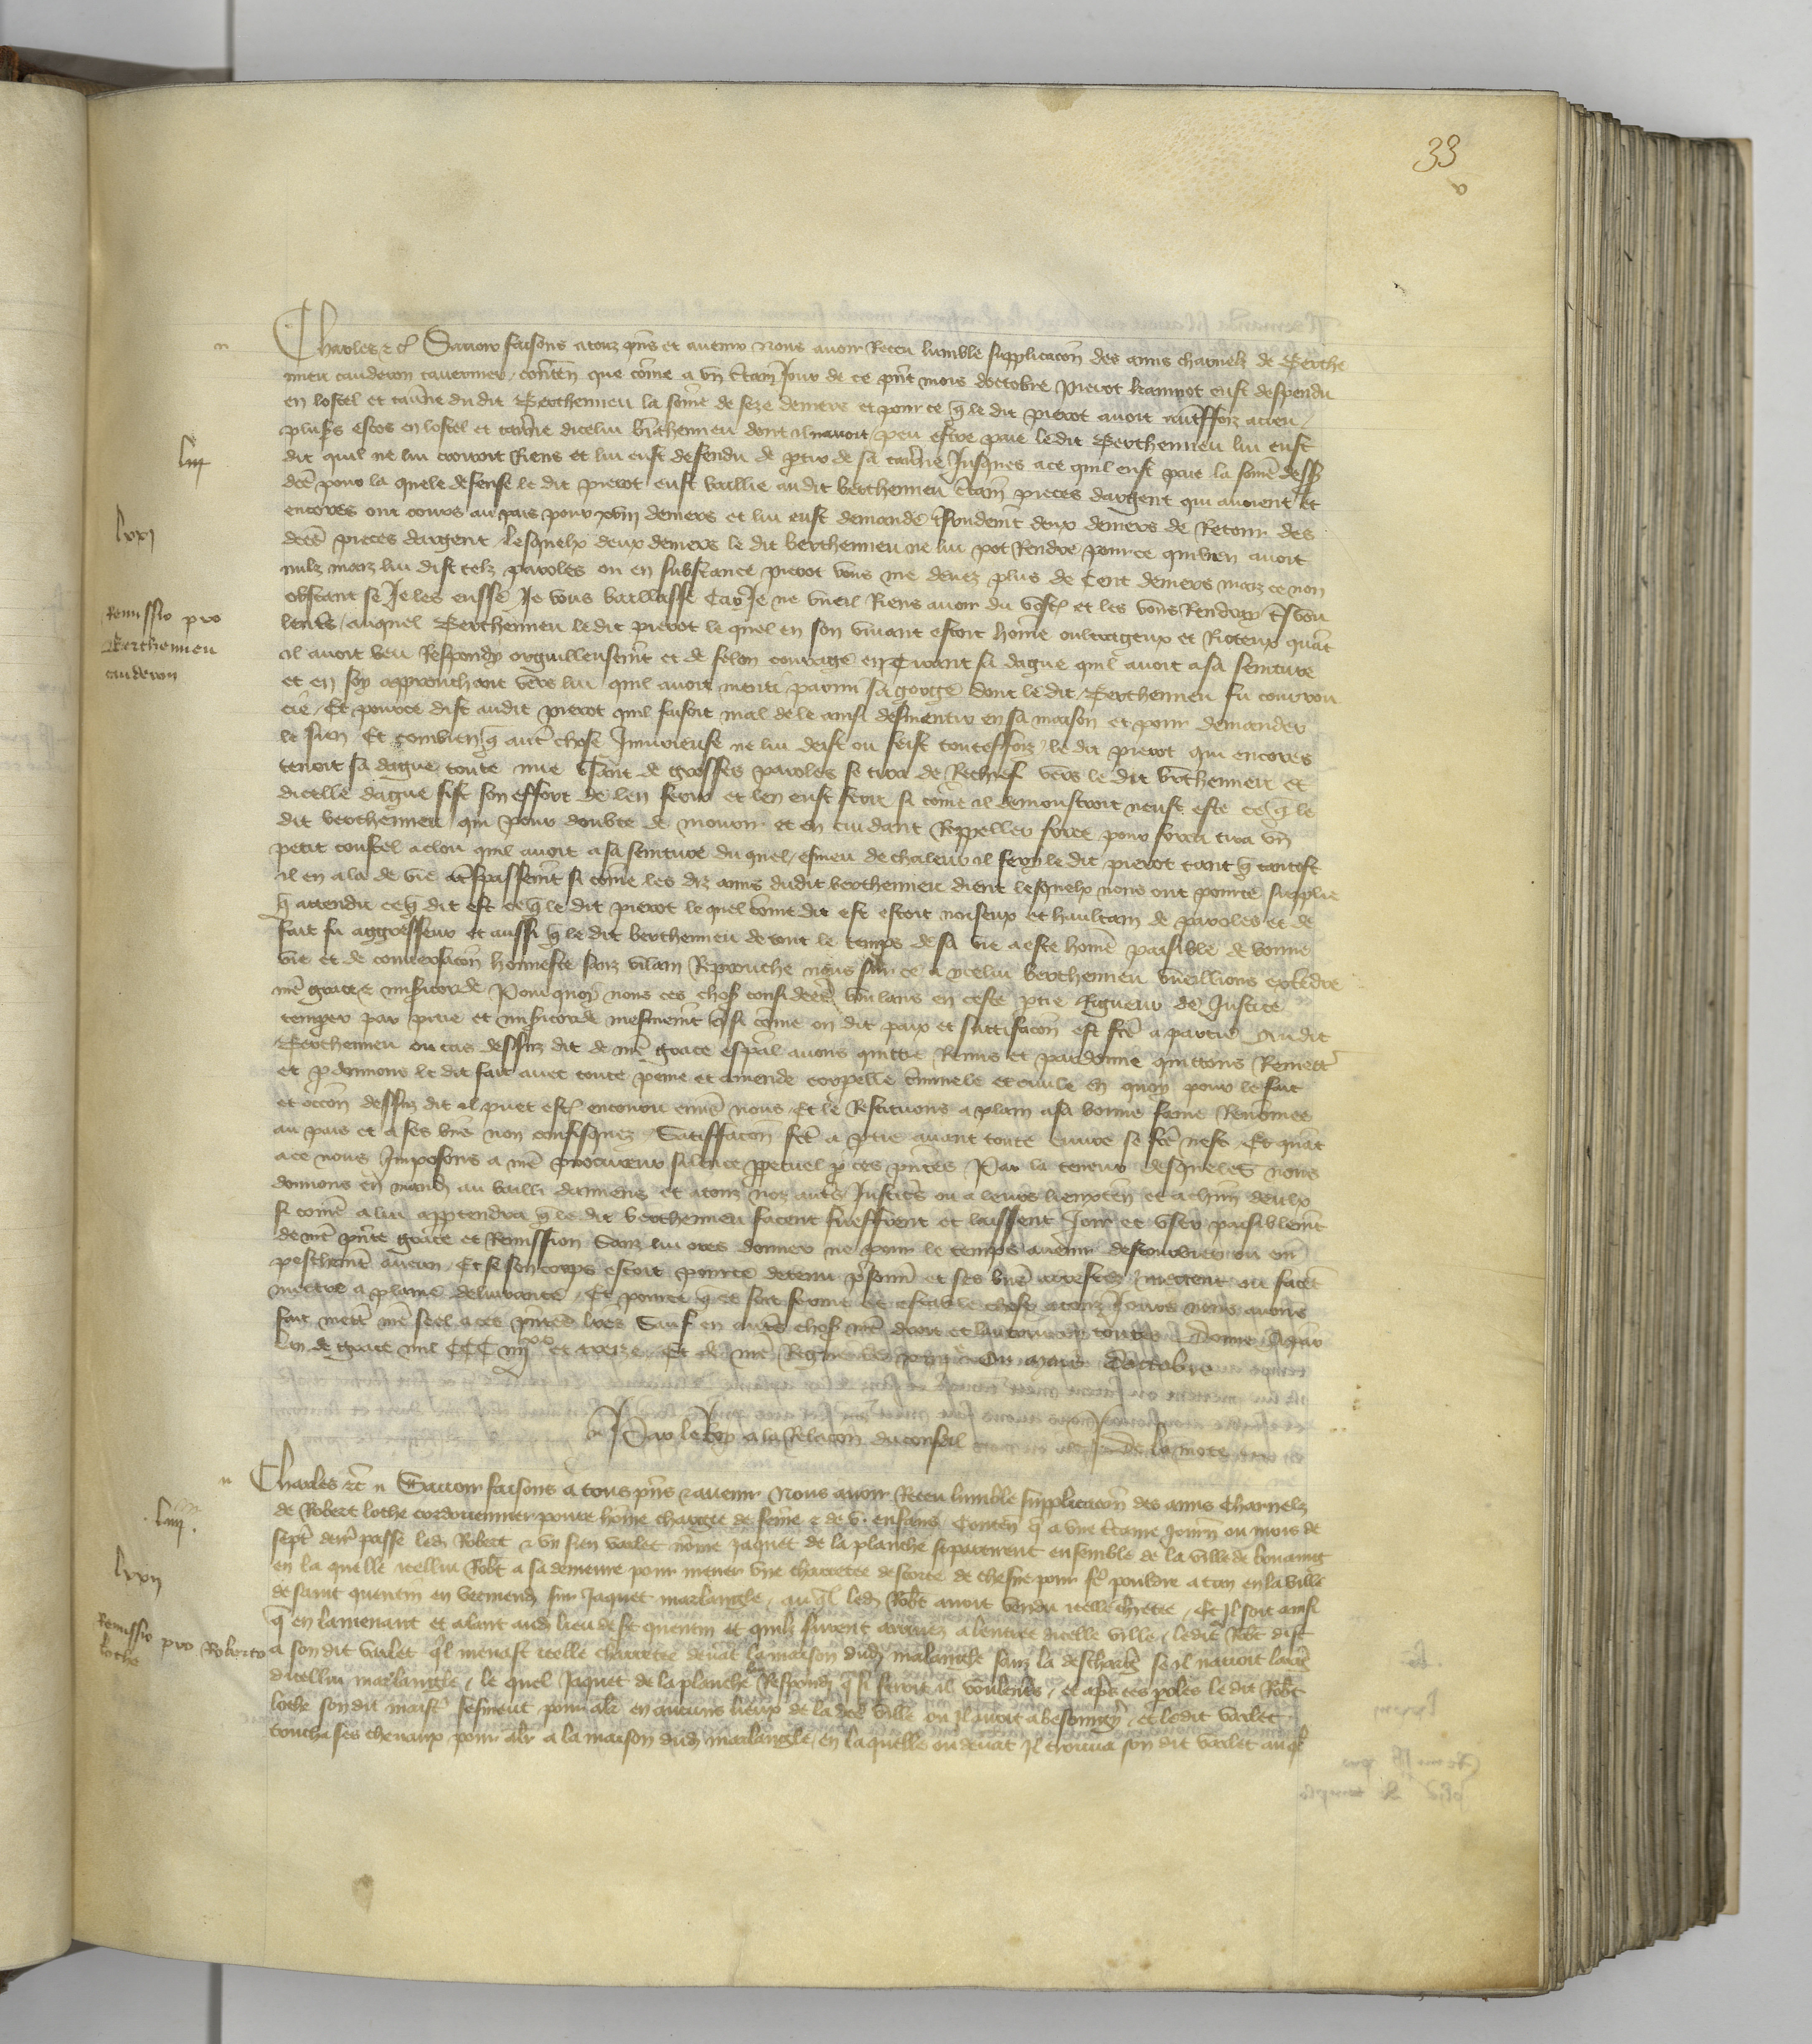 33
v
Charles etc Savoir faisons a touz p̄ns et avenir nous avoir Receu lumble supplicacōn des amis charnelz de Berthe
mieu cauderon tavernier conteñ que cōme a un c̄tain Jour de ce p̄nt mois doctobre Pierot hannot eust despendu
en lostel et tav̄ne du dit Berthemieu la sōme de seze deniers et pour ce q̄ le dit pierot avoit aut̄ffoiz acreu
plus̄s escos en lostel et tav̄ne dicelui b̄themieu dont il navoit peu estre paie le dit Berthemieu lui eust
dit quil ne lui croiroit Riens et lui eust defendu de p̄tir de sa tav̄ne Jusques a ce quil eust paie la sōme dess
dc̄e pour la quele defense le dit pierot eust baillie au dit berthemieu c̄tain pieces dargent qui avoient et
encores ont cours au pais pour xviii deniers et lui eust demande deux deniers de Retour des
dc̄es pieces dargent lesquelx deux deniers le dit berthemieu ne lui pot Rendre pour ce quil nen avoit
nulz maiz lui dist telz paroles ou en substance pierot vous me devez plus de cent deniers maiz ce non
obstant se Je les eusse Je vous baillasse car Je ne vueil Riens avoir du vost̄ et les vous Rendray t̄svou
lent̄s auquel Berthemieu le dit pierot le quel en son vivant estoit hōme oultrageux et Rioteux quāt
il avoit beu Respondy orguilleusem̄t et de felon courage en tirant sa dague quil avoit a sa seinture
et en soy approuchant v̄s lui quil avoit menti parmi sa gorge dont le dit Berthemieu fu courrou
cie Et pource dist audit pierot quil faisoit mal de le ainsi desmentir en sa maison et pour demander
le sien Et combien q̄ aut̄ chose Iniurieuse ne lui deist ou feist touteffoiz le dit pierot qui encores
tenoit sa dague toute nue usant de grosses paroles se tira de Rechief v̄s le dit b̄themieu et
dicelle dague fist son effort de len ferir et len eust feru si cōme il demonstroit neust este ce q̄ le
dit berthemieu qui pour doubte de mourir et en cuidant Reppeller force pour force tira un
petit coustel a clou quil avoit a sa seinture du quel esmeu de chaleur il fery le dit pierot tant q̄ tantost
il en ala de vie a t̄spassem̄t si cōme les diz amis dudit berthemieu dient lesquelx nous ont pource supplie
q̄ attendu ce q̄ dit est ce q̄ le dit pierot le quel cōme dit est estoit noiseux et haultain de paroles et de
fait fu aggresseur et aussi q̄ le dit berthemieu de tout le temps de sa vie a este hōme paisible de bonne
vie et de conversacōn honneste sanz vilain Reprouche nous sur ce a icelui berthemieu vueillions extēdre
nr̄e grace et mis̄icorde Pourquoy nous ces chos̄ considerees voulans en ceste p̄tie Rigueur de Justice
temp̄er par pitie et mis̄icorde mesmem̄t q̄ si cōme on dit paix et sattifacōn est fc̄e a partie Au dit
Berthemieu ou cas dessuz dit de nr̄e grace esp̄al avons quittie Remis et pardonne quittons Remett̄
et p̄donnons le dit fait avec toute peine et amende corpelle c̄minele et civile en quoy pour le fait
et occ̄on dessuz dit il puet est̄ encouru env̄s nous Et le Restituons a plain a sa bonne fame Renōmee
au pais et a ses b̄ns non confisquez Satiffacōn fc̄e a p̄tie avant toute euvre se fc̄e nest Et quāt
a ce nous Imposons a nr̄e procureur silence p̄petuel p̄ ces p̄ntes Par la teneur desqueles nous
donnons en mand̄ au bailli damiens et a touz noz aut̄s Justic̄s ou a leurs lieuxteñ et a chūn deulx
si cōme a lui app̄tendra q̄ le dit berthemieu facent sueffrent et laissent Joir et user paisiblem̄t
de nr̄e p̄nte grace et Remission Sanz lui ores donner ne pour le temps avenir destourbier ou em̄
peschem̄t aucun Et se son corps estoit pource detenu p̄sonn̄ et ses b̄ns arrestez mettent ou facēt
mettre a plaine delivrance Et pource q̄ ce soit ferme et estable chose a touz Jours nous avons
fait mett̄ nr̄e seel a ces p̄ntes l̄res Sauf en aut̄s chos̄ nr̄e droit et lautrui en toutes Donne a Par̄
lan de grace mil CCC iiiixx et treize Et de nr̄e Regne le xiiii ou mois doctobre
Par le Roy a la Relacōn du conseil De la mote
Charles etc Savoir faisons a tous p̄ns et avenir Nous avoir Receu lumble supplicacōn des amis charnelz
de Robert lothe cordouennier povre hōme chargie de fēme et de v. enfans Conteñ q̄ a une c̄taine Journ̄ ou mois de
sept̄ derr̄ passe led̄ Robert et un sien varlet nōme Jaquet de la planche se partirent ensemble de la ville de bouaing
en la quelle icellui Rob̄t a sa demeure pour mener une charretee descorce de chesne pour fē pouldre a tan en la ville
de saint quentin en vermend̄ sur Jaquet marlangle au q̄l led̄ Rob̄t avoit vendu icelle ch̄retee Et Il soit ainsi
q̄ en lamenant et alant aud̄ lieu de st̄ quentin et quilz furent arrivez a lentree dicelle ville ledit Rob̄t dist
a son dit varlet q̄l menast icelle charretee devāt la maison dud̄ malangle sanz la descharḡ se il navoit larḡ
dicellui marlangle le quel Jaquet de la planche Respond̄ q̄ si feroit il voulent̄s et ap̄s ces p̄oles le dit Rob̄t
lothe son dit maist̄ sesmeut pour aler en aucuns lieux de la dc̄e ville ou Il avoit a besoingn̄ et ledit varlet
toucha ses chevaux pour aler a la maison dud̄ marlangle en laquelle ou devāt Il trouva son dit varlet auq̄l
liii
lxxi
Remissio pro
Berthemieu
cauderon
liiii
lxxii
Remissio pro Roberto
lothe